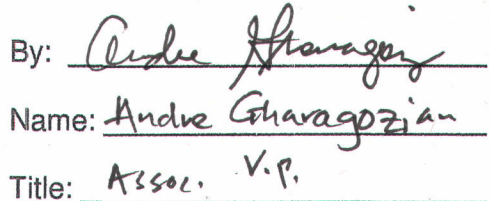 By: Andre Gharagozian
Name: Andre Gharagozian
Title: Assoc. V.P.